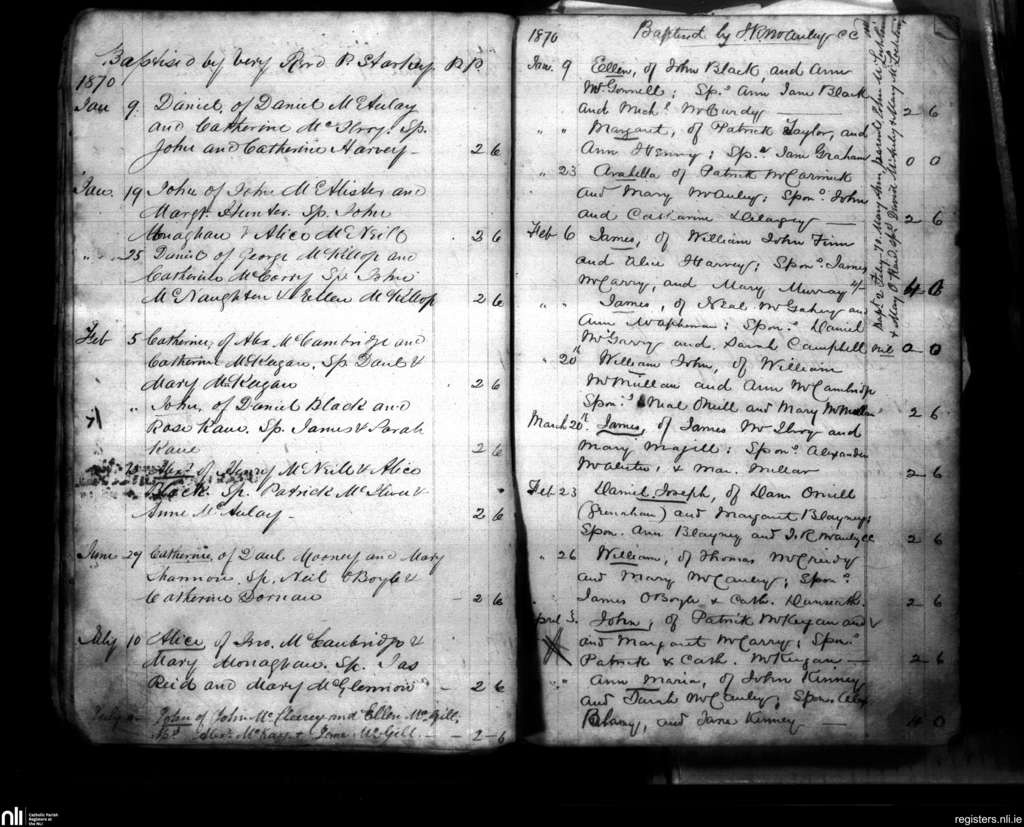 Baptised by Very Revd P. Starkey P.P.
1870
Jan 9. Daniel, of Daniel McAulay
and Catherine McIlroy. Sp.
John and Catherine Harvey - 2 6
Jan. 19 John of John McAlister and
Margt. Hunter. Sp. John
Monaghan & Alice McNeill . 2 6
" " 25 Daniel of George McKillop and
Catherine McCorry Sp. John
McNaughten & Ellen McKillop 2 6
Feb 5 Catherine, of Alex McCambridge and
Catherine McKeagan. Sp. Daul &
Mary McKeagan . 2 6
" John, of Daniel Black and
Rose Kane. Sp. James & Sarah
Kane 2 6
of Henry McNeill & Alice
Black. Sp. Patrick &
Anne McAulay - 2 6
June 29 Catherine, of Daul Mooney and Mary
Shannon. Sp. Neil O'Boyle &
Catherine Dornan - 2 6
July 10 Alice of Jno. McCambridge &
Mary Monaghan. Sp. Jas
Reid and Mary McGlennon - 2 6
John of John McCleerey and Ellen McGill.
Alex. McKay & Jane McGill. - 2 - 6
1870 Baptised by J.K. McAuley CC
Jan. 9 Ellen, of John Black, and Ann
McGonnell; Sp.s Ann Jane Black
and Michl. McCurdy 2 6
" " Margaret, of Patrick Taylor, and
Ann Henry; Sp.s Jane Graham 0 0
" 23 Arabella of Patrick McCormick
and Mary McAuley; Spons. John
and Catharine 2 6
Feb 6 James, of William John Finn
and Alice Harvey; Spons. James
McCarry, and Mary Murray 4/- 4 0
" " James, of Neal McGahey and
Ann; Spons. Daniel
McGarry and, Sarah Campbell nil 0 - 0
" 20th William John, of William
McMullan and Ann McCambridge
Spons. Neal Oneill and Mary McMullan 2 6
March 20th. James, of James McIlroy and
Mary Magill: Spons. Alexander
McAlister, & Mar. Millar 2 - 6
Feb 23 Daniel Joseph, of Dan Oneill
and Margaret Blayney;
Spon. Ann Blayney and J.K. McAuley CC 2 6
" 26 William, of Thomas McCreedy
and Mary McCauley; Spons.
James O'Boyle & Cath. 2 - 6
April 3. John, of Patrick McKeegan and
and Margaret McCarry; Spons.
Patrick & Cath. McKeegan — 2 - 6
" " Ann Maria, of John Kinney
and Sarah McCauley; Spons. Alex
Blaney, and Jane Kinney — 4 0
Bapt. 2 Feby 70 Mary Ann parents John McLachlin
& Mary O'Hard. Sps David McAuley & Mary
nli
Catholic Parish
Registers at
the NLI
registers.nli.ie